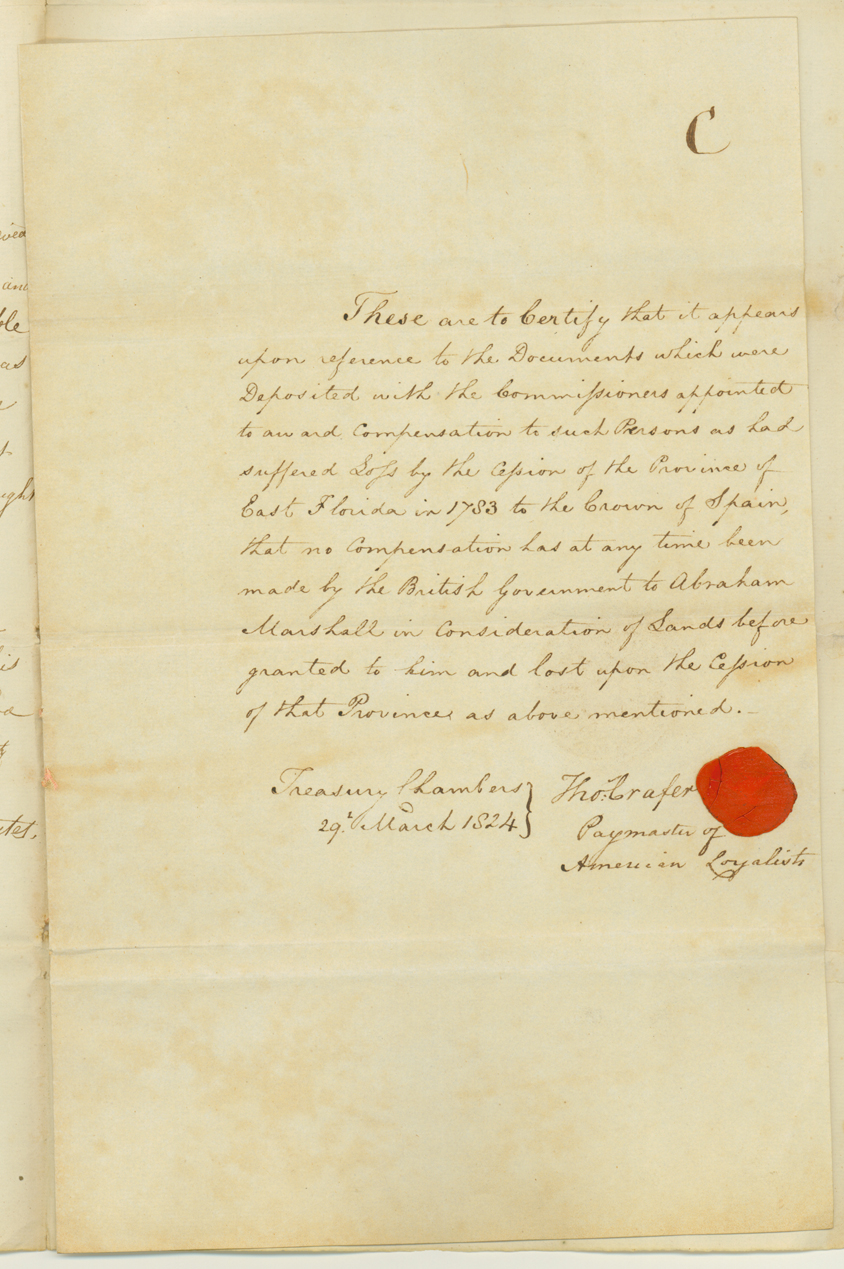 C
These are to Certify that it appears
upon reference to the Documents which were
Deposited with the Commissioners appointed
to award Compensation to such Persons as had
suffered Loss by the Cession of the Province of
East Florida in 1783 to the Crown of Spain,
that no Compensation has at any time been
made by the British Government to Abraham
Marshall in Consideration of Lands before
granted to him and lost upon the Cession
of that Province as above mentioned.
Treasury Chambers
29. March 1824
Tho: Crafer
Paymaster of
American Loyalists
and
as